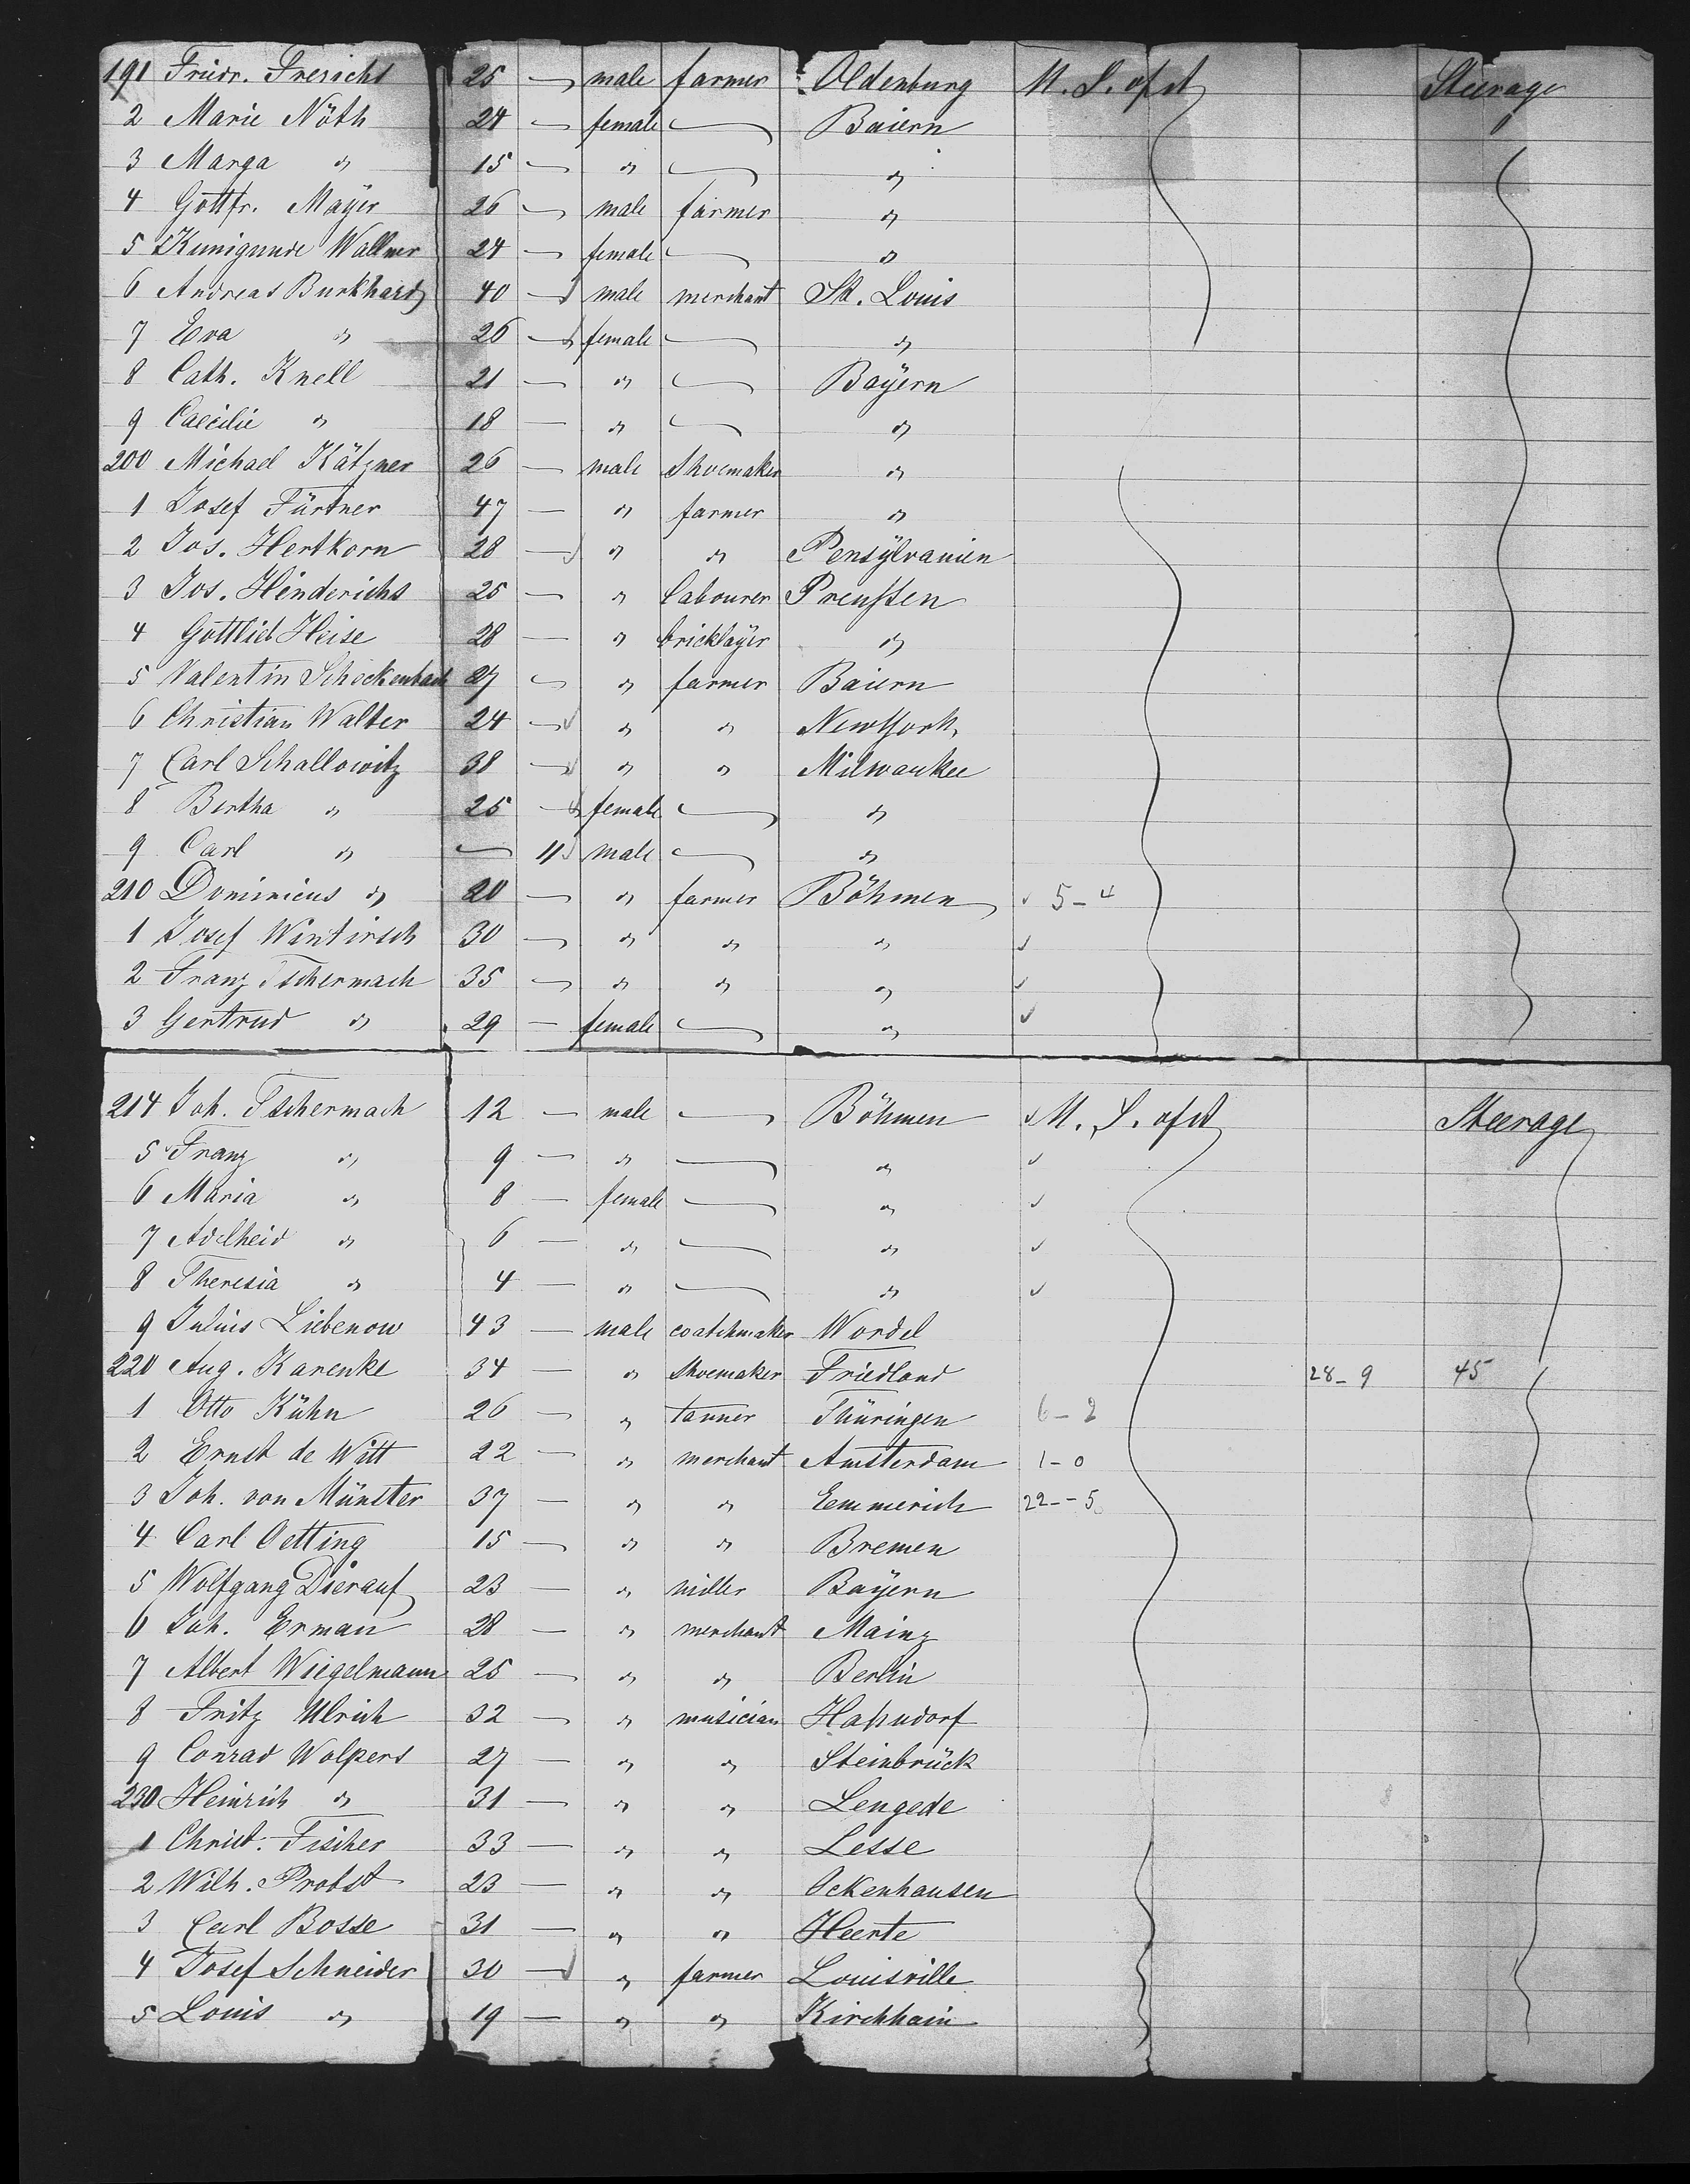 191 Friedr. Frerichs 25 — male farmer Oldenburg U. S. of A. Steerage
2 Marie Nöth 24 — female — Baiern
3 Marga " 15 — " — "
4 Gottfr. Mayer 26 — male farmer "
5 Kunigunde Wallner 24 — female — "
6 Andreas Burkhard 40 — male merchant St. Louis
7 Eva " 26 — female — "
8 Cath. Knell 21 — " — Bayern
9 Caecilie " 18 — " — "
200 Michael Kätzner 26 — male Shoemaker "
1 Josef Fürtner 47 — " farmer "
2 Jos. Hertkorn 28 — " " Pensylvanien
3 Jos. Hinderichs 25 — " labourer Preußen
4 Gottlieb Heise 28 — " bricklayer "
5 Valentin Scheckenbach 27 — " farmer Baiern
6 Christian Walter 24 — " " New York
7 Carl Schallowitz 38 — " " Milwaukee
8 Bertha " 25 — female — "
9 Carl " — 11 male — "
210 Dominicus " 20 — " farmer Böhmen ✓ 5-4
1 Josef Wintirsch 30 — " " " ✓
2 Franz Tschermach 35 — " " " ✓
3 Gertrud " 29 — female — " ✓
214 Joh. Tschermach 12 — male — Böhmen ✓ U. S. of A. Steerage
5 Franz " 9 — " — " ✓
6 Maria " 8 — female — " ✓
7 Adelheid " 6 — " — " ✓
8 Theresia " 4 — " — " ✓
9 Julius Liebenow 43 — male coatchmaker Wordel
220 Aug. Karenke 34 — " Shoemaker Friedland 28-9 45
1 Otto Kühn 26 — " tanner Thüringen 6-2
2 Ernst de Witt 22 — " merchant Amsterdam 1-0
3 Joh. von Münster 37 — " " Eemmerich 22--5
4 Carl Oetting 15 — " " Bremen
5 Wolfgang Dierauf 23 — " miller Bayern
6 Joh. Erman 28 — " merchant Mainz
7 Albert Wiegelmann 25 — " " Berlin
8 Fritz Ulrich 32 — " musician Hahndorf
9 Conrad Wolpers 27 — " " Steinbrück
230 Heinrich " 31 — " " Lengede
1 Christ. Fischer 33 — " " Lesse
2 Wilh. Probst 23 — " " Ockenhausen
3 Carl Bosse 31 — " " Heerte
4 Josef Schneider 30 — " farmer Louisville
5 Louis " 19 — " " Kirchhain